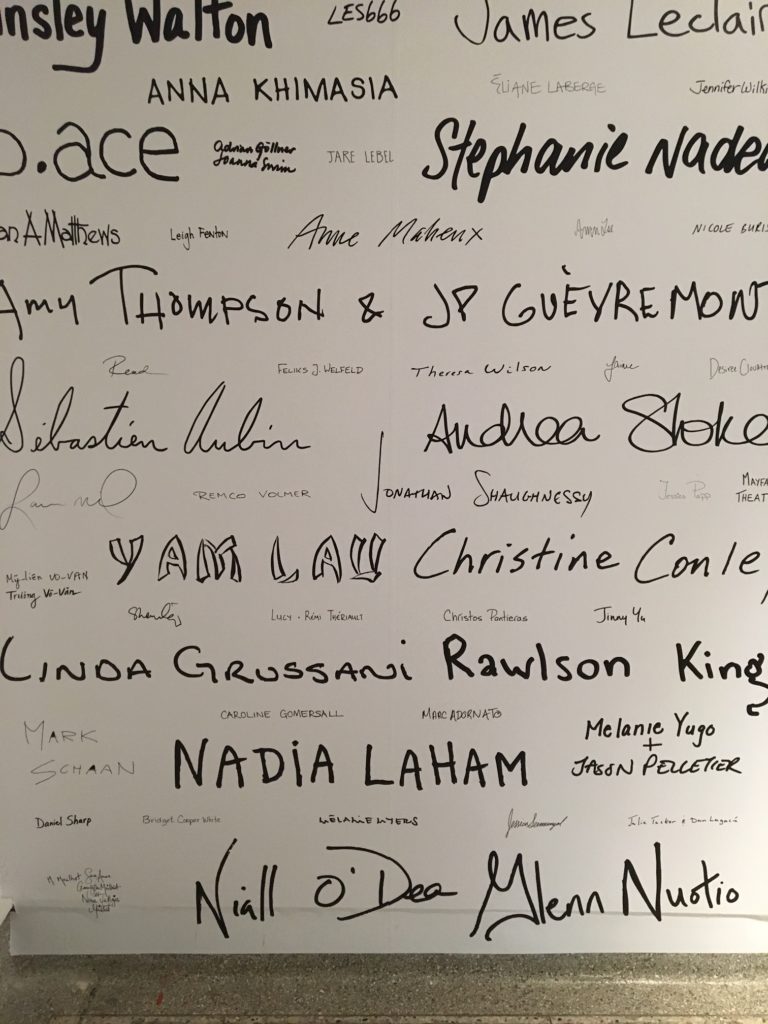 insley Walton LES666 James Leclair
ANNA KHIMASIA ÉLIANE LABERGE Jennifer Wilk
p.ace Adrian Göllner JARE LEBEL Stephanie Nade
Joanna Swim
an A Matthews Leigh Fenton Anne Maheux Amin NICOLE BURIS
Amy THOMPSON & JP GUÈVREMONT
Read FELIKS J. WELFELD Theresa Wilson Jamie DESIREE
Sébastien Aubin Andrea Stoke
REMCO VOLMER JONATHAN SHAUGHNESSY Jessica Papp MAYFA
THEAT
YAM LAU Christine Conle
Mỹ-liên VÕ-VĂN
Trường Võ-Văn
Shenley LUCY + RÉMI THÉRIAULT Christos Pantieras Jinny Yu
LINDA GRUSSANI Rawlson King
CAROLINE GOMERSALL MARC ADORNATO
MARK
SCHAAN
NADIA LAHAM
Melanie Yugo
+
JASON PELLETIER
Daniel Sharp Bridget Cooper White MÉLANIE MYERS Julie Tucker & Dan Lagacé
Niall O'Dea Glenn Nuotio